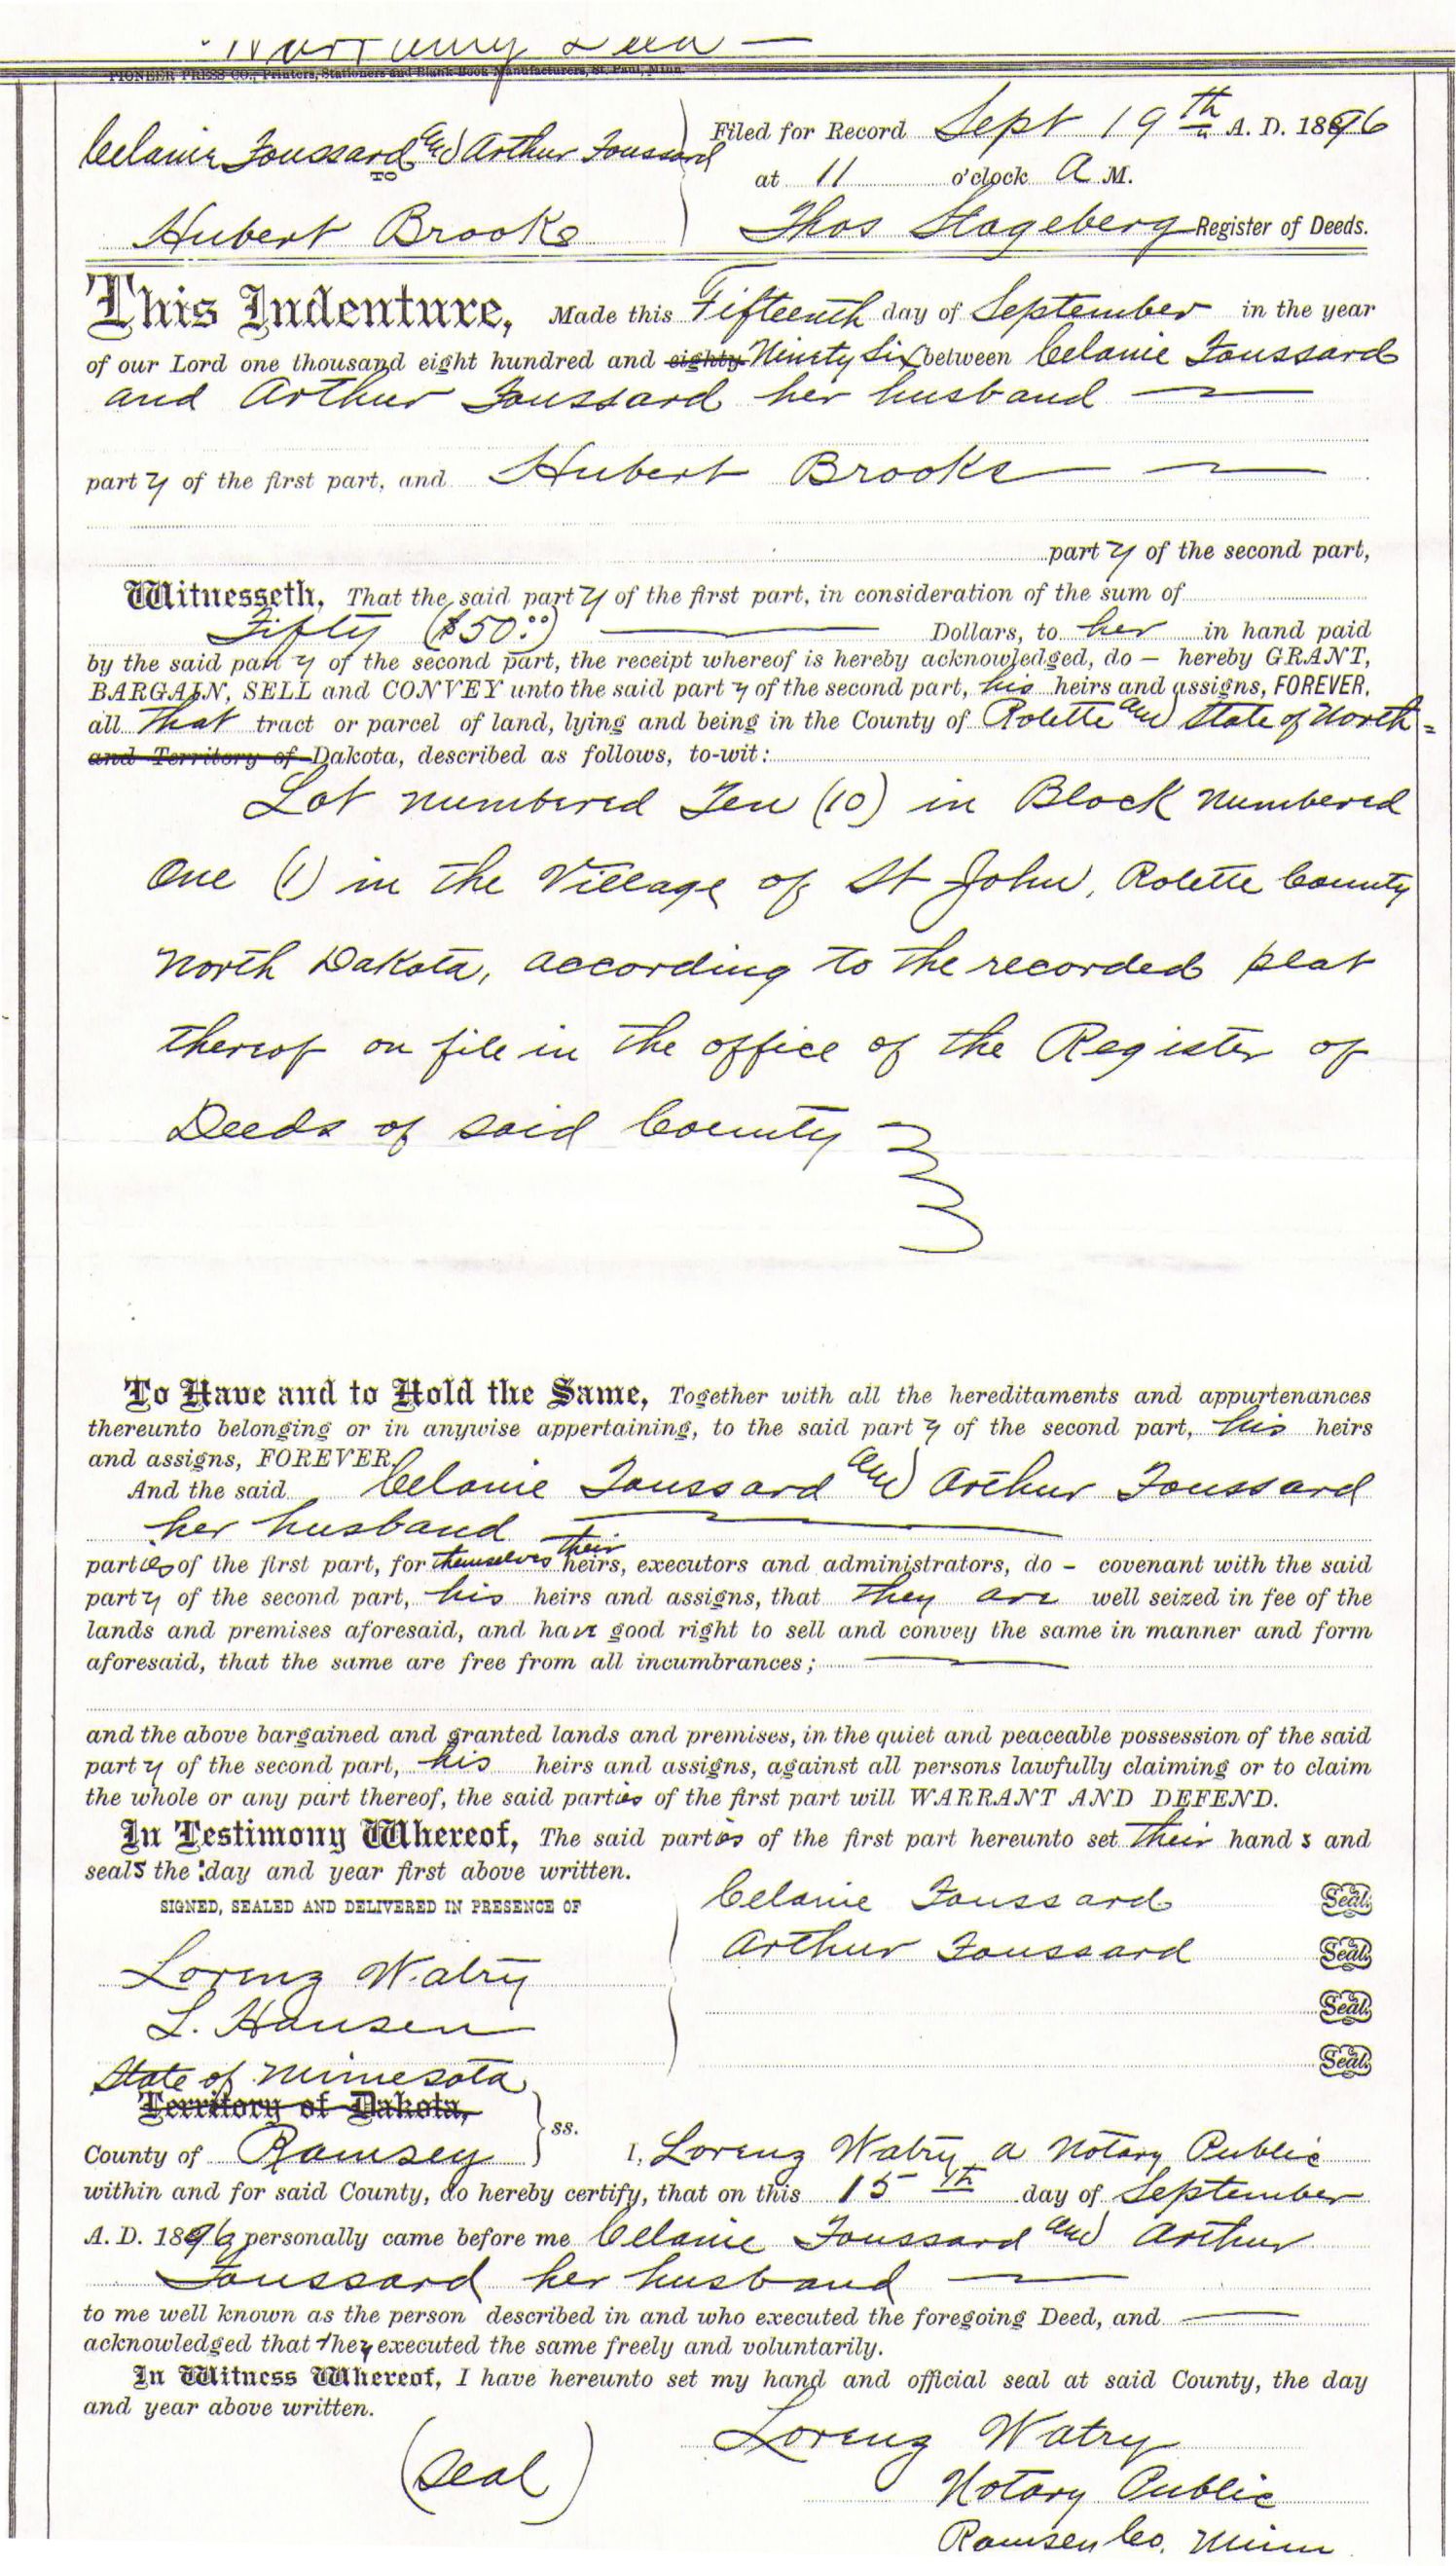 Warranty Deed —
PIONEER PRESS CO., Printers, Stationers and Blank Book Manufacturers, St. Paul, Minn.
Celanie Toussard and Arthur Toussard
TO
Hubert Brooks
Filed for Record Sept 19th A. D. 1896
at 11 o'clock A M.
Thos Hageberg Register of Deeds.
This Indenture, Made this Fifteenth day of September in the year
of our Lord one thousand eight hundred and eighty Ninety Six between Celanie Toussard
and Arthur Toussard her husband —
party of the first part, and Hubert Brooks —
party of the second part,
Witnesseth, That the said party of the first part, in consideration of the sum of
Fifty ($50.00) — Dollars, to her in hand paid
by the said party of the second part, the receipt whereof is hereby acknowledged, do — hereby GRANT,
BARGAIN, SELL and CONVEY unto the said party of the second part, his heirs and assigns, FOREVER,
all that tract or parcel of land, lying and being in the County of Rolette and State of North =
and Territory of Dakota, described as follows, to-wit:
Lot numbered Ten (10) in Block numbered
One (1) in the Village of St John, Rolette County
North Dakota, according to the recorded plat
thereof on file in the office of the Register of
Deeds of said County
To Have and to Hold the Same, Together with all the hereditaments and appurtenances
thereunto belonging or in anywise appertaining, to the said party of the second part, his heirs
and assigns, FOREVER.
And the said Celanie Toussard and Arthur Toussard
her husband —
parties of the first part, for themselves their heirs, executors and administrators, do — covenant with the said
party of the second part, his heirs and assigns, that they are well seized in fee of the
lands and premises aforesaid, and have good right to sell and convey the same in manner and form
aforesaid, that the same are free from all incumbrances; —
and the above bargained and granted lands and premises, in the quiet and peaceable possession of the said
party of the second part, his heirs and assigns, against all persons lawfully claiming or to claim
the whole or any part thereof, the said parties of the first part will WARRANT AND DEFEND.
In Testimony Whereof, The said parties of the first part hereunto set their hands and
seals the day and year first above written.
SIGNED, SEALED AND DELIVERED IN PRESENCE OF
Lorenz Watry
L. Hansen
Celanie Toussard Seal
Arthur Toussard Seal
Seal
Seal
State of Minnesota
Territory of Dakota,
ss.
County of Ramsey I, Lorenz Watry a Notary Public
within and for said County, do hereby certify, that on this 15th day of September
A. D. 1896 personally came before me Celanie Toussard and Arthur
Toussard her husband —
to me well known as the person described in and who executed the foregoing Deed, and —
acknowledged that they executed the same freely and voluntarily.
In Witness Whereof, I have hereunto set my hand and official seal at said County, the day
and year above written.
(Seal)
Lorenz Watry
Notary Public
Ramsey Co. Minn